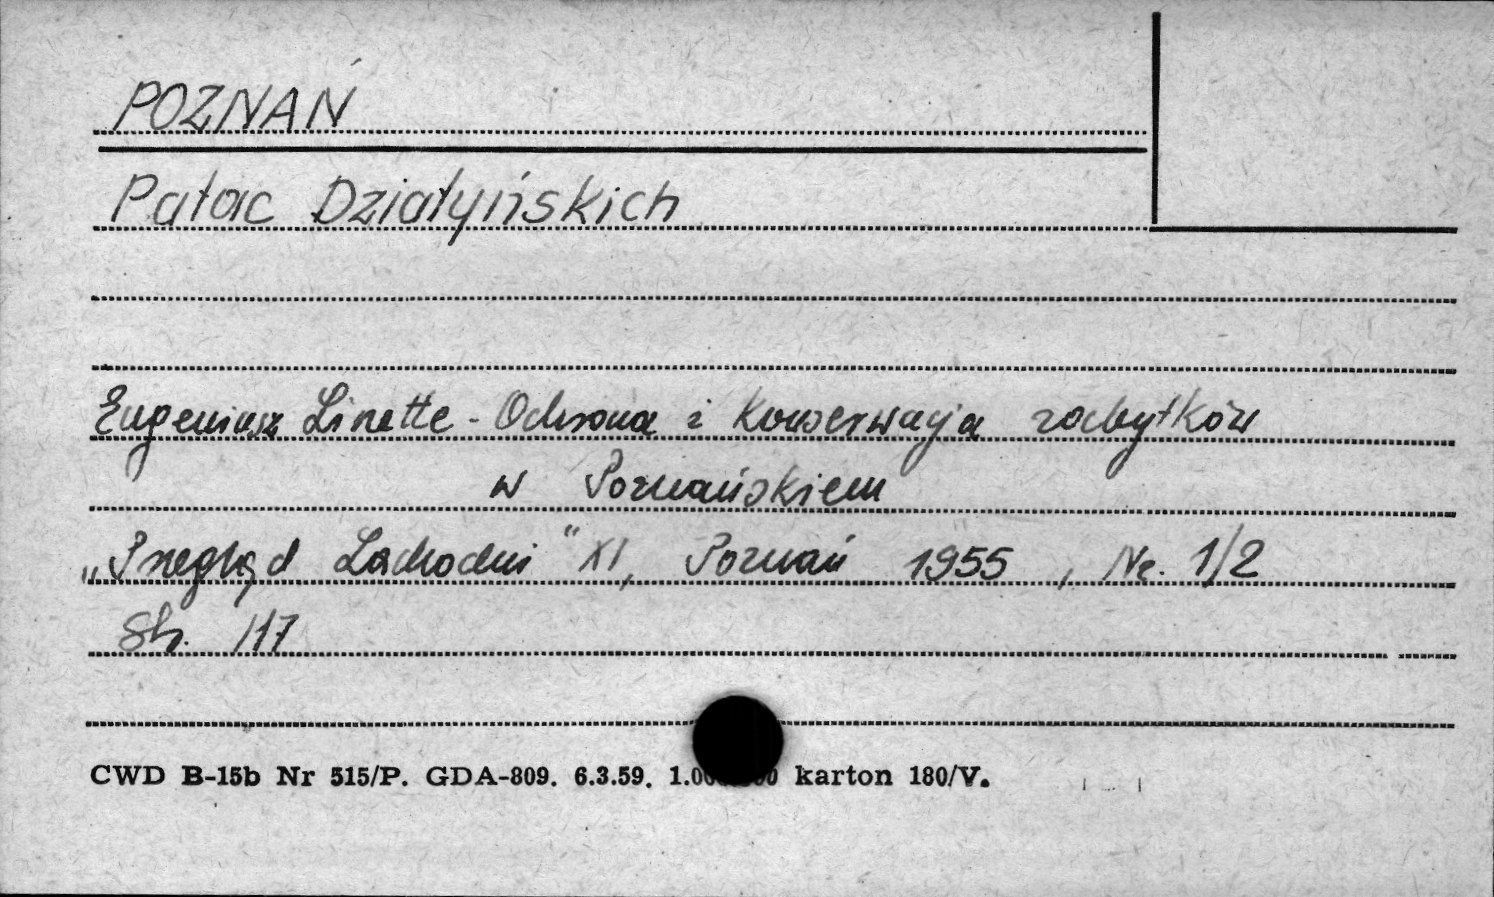 POZNAŃ
Pałac Działyńskich
Eugeniusz Linette - Ochrona i konserwacja zabytków
w Poznańskiem
„Przegląd Zachodni" XI, Poznań 1955, Nr. 1/2
Str. 117
CWD B-15b Nr 515/P. GDA-809. 6.3.59. karton 180/V.